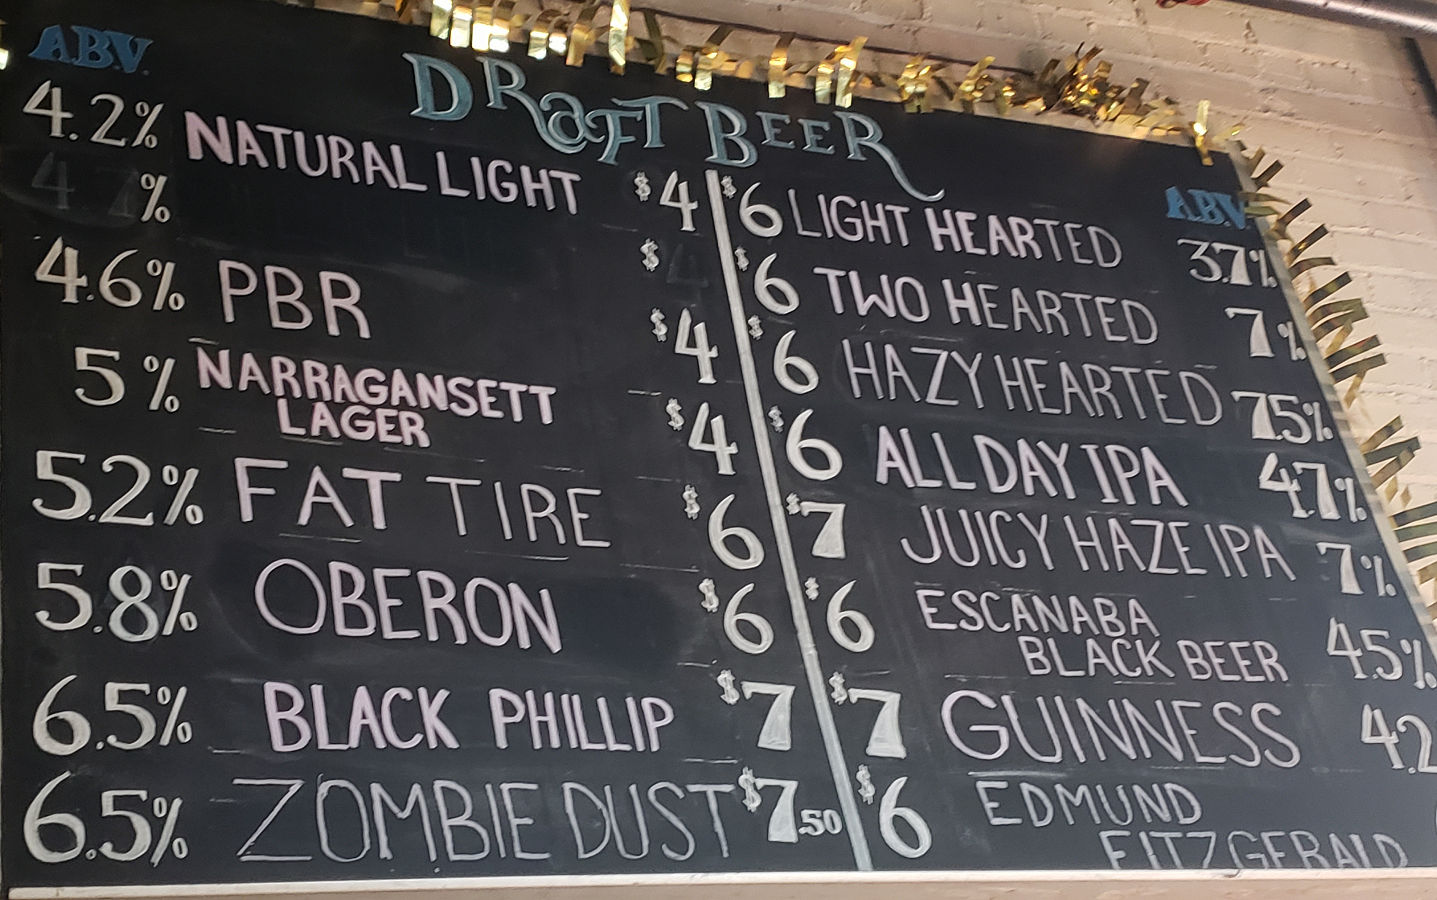 DRAFT BEER
A.B.V.
4.2% NATURAL LIGHT $4
4 7 % $4
4.6% PBR $4
5% NARRAGANSETT
LAGER $4
5.2% FAT TIRE $6
5.8% OBERON $6
6.5% BLACK PHILLIP $7
6.5% ZOMBIE DUST $7.50
A.B.V.
$6 LIGHT HEARTED 3.7%
$6 TWO HEARTED 7%
$6 HAZY HEARTED 7.5%
$6 ALL DAY IPA 4.7%
$7 JUICY HAZE IPA 7%
$6 ESCANABA
BLACK BEER 4.5%
$7 GUINNESS 4.2
$6 EDMUND
FITZGERALD